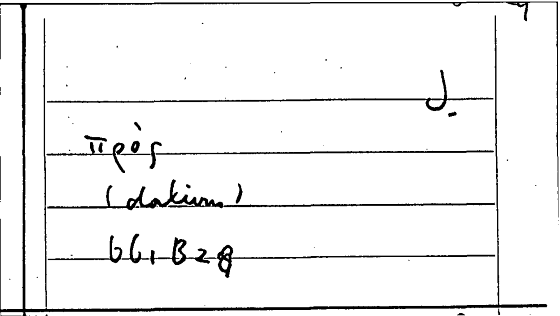 J.
πρός
(dativum)
661 B 28